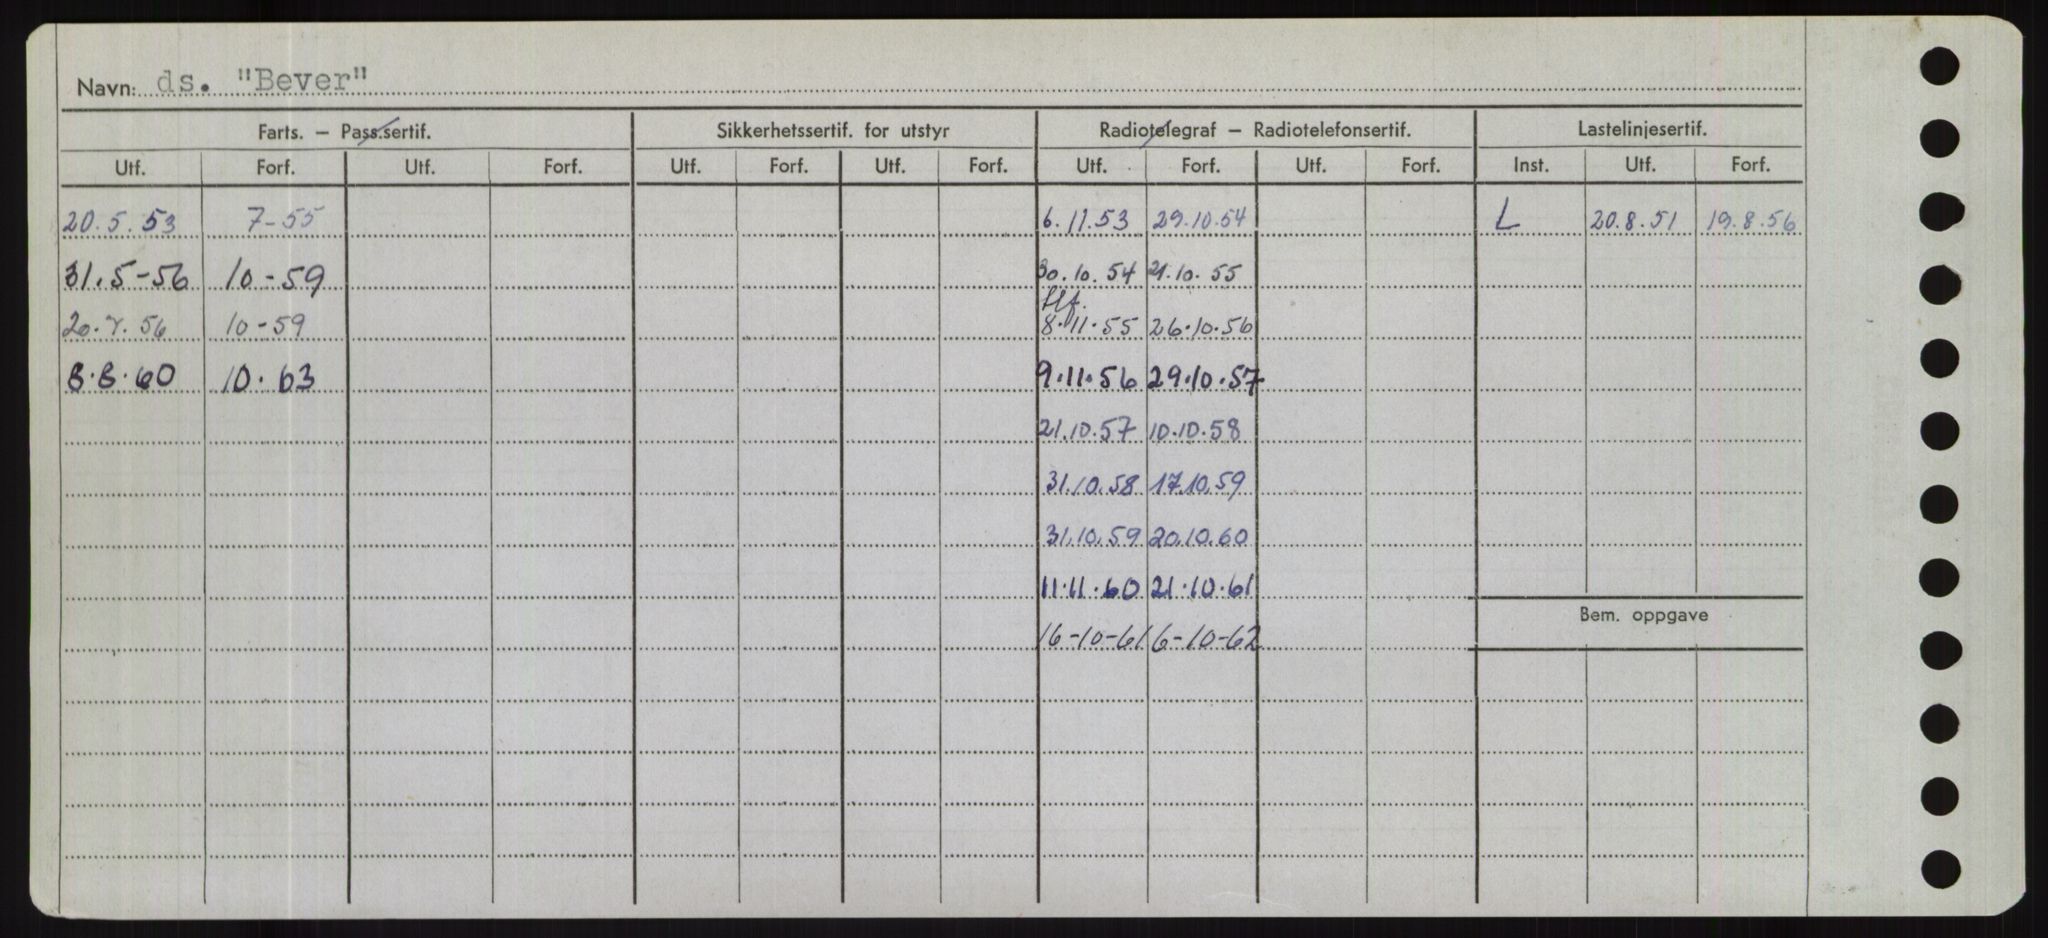 Navn: ds. "Bever"
Farts. – Pass.sertif. Sikkerhetssertif. for utstyr Radiotelegraf – Radiotelefonsertif. Lastelinjesertif.
Utf. Forf. Utf. Forf. Utf. Forf. Utf. Forf. Utf. Forf. Utf. Forf. Inst. Utf. Forf.
20.5.53 7-55 6.11.53 29.10.54 L 20.8.51 19.8.56
31.5-56 10-59 30.10.54 21.10.55
20.7.56 10-59 8.11.55 26.10.56
8.8.60 10.63 9.11.56 29.10.57
21.10.57 10.10.58
31.10.58 17.10.59
31.10.59 20.10.60
11.11.60 21.10.61
Bem. oppgave
16-10-61 6-10-62